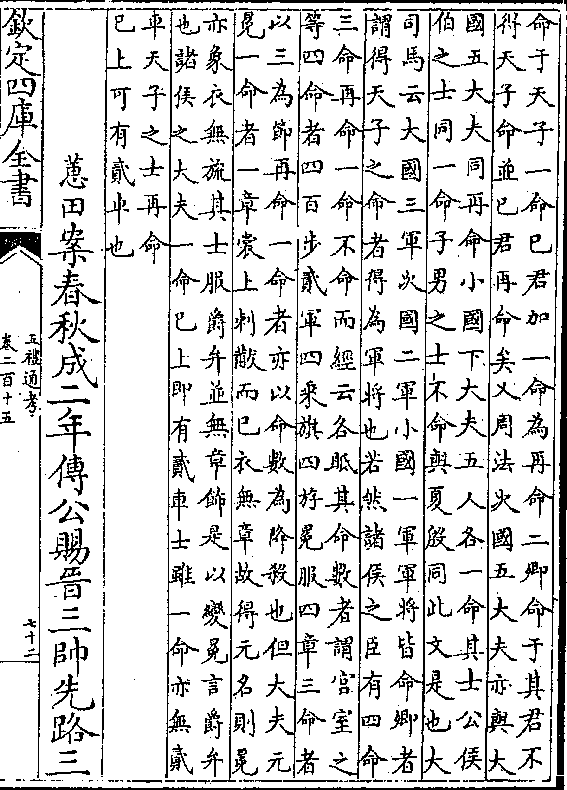 命于天子一命已君加一命為再命二卿命于其君不
得天子命並已君再命矣又周法次國五大夫亦與大
國五大夫同再命小國下大夫五人各一命其士公侯
伯之士同一命子男之士不命與夏殷同此文是也大
司馬云大國三軍次國二軍小國一軍軍將皆命卿者
謂得天子之命者得為軍將也若然諸侯之臣有四命
三命再命一命不命而經云各眡其命數者謂宫室之
等四命者四百步貳軍四乘旗四斿冕服四章三命者
以三為節再命一命者亦以命數為降殺也但大夫元
冕一命者一章裳上刺黻而已衣無章故得元名則冕
亦象衣無旒其士服爵弁並無章飾是以變冕言爵弁
也諸侯之大夫一命已上即有貳車士雖一命亦無貳
車天子之士再命
已上可有貳車也
蕙田案春秋成二年傳公賜晉三帥先路三
欽定四庫全書
五禮通考
卷二百十五
七十二